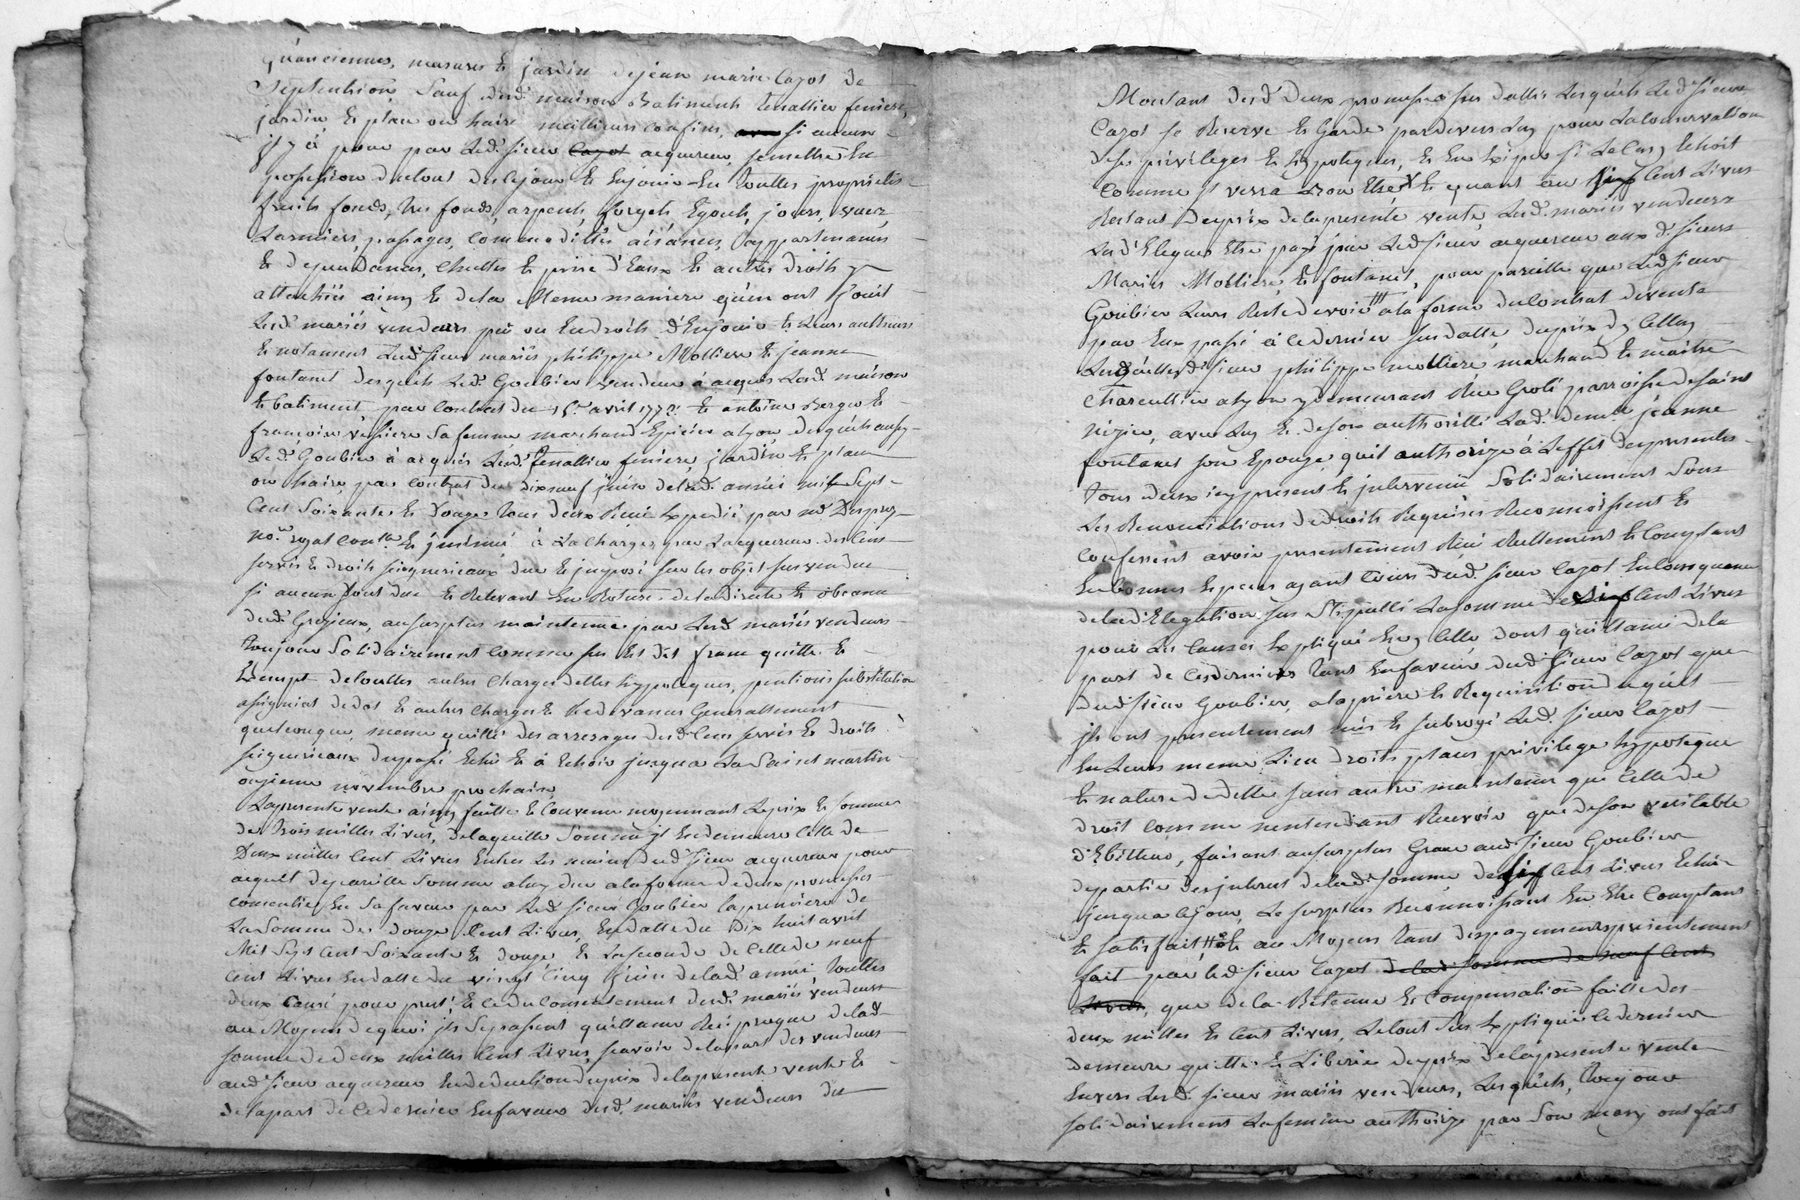 quanciennes, masures & jardin dejean marie Cazot de
Septentrion Sauf desd. maison Batiments tenallier feniere,
jardin, & plan ou haire meilleurs confins, si aucuns
jl y à pour par Led. sieur Cazot acquereur, se mettre En
possession du tout des cejour & Enjouir En touttes proprietés
fruits fonds, tres fonds, arpents, forgets, Egouts, jours, vues,
Larmiers, passages, Commodittés aisances, & appartenances
& dependances, Chuttes & prise d'Eaux & autres droits y
attachés ainsy & dela Meme maniere qu'en ont Jouit
Lesd. mariés vendeurs pû ou Eu droits d'Enjouir & Leurs autheurs
& notament Led. sieur mariés philippe Mollière & jeanne
fontanet desquels Led. Goubier vendeur à acquis Lesd. maison
& batiment, par Contrat du avril 1772. & antoine Berger &
françoise sa femme marchand Epicier alyon desquels aussy
Led. Goubier à acquis Lesd. tenallier feniere, jardin & plan
ou haire, par contrat du dixneuf juin delad. année mil Sept
Cent Soixante & Douze tous deux Recû Expedié par me Desprez
nore. royal & à la Charge par Lacquereur des Cens
servis & droits seigneuriaux dus & jmposé sur les objet sus vendue
si aucun sont dus & Relevant En Roture dela directe &
desd. Grezieux, ausurplus maintenue par Lesd. mariés vendeurs
toujours Solidairement Comme sus Est dit franc quitte &
Exempt detouttes autres Charges dettes hypoteques, pentions substitution
assignats dedot & autres Charges & Redevances Generallement
quelconque, meme quitté des arrerages desd. Cens servis & droits
seigneuriaux dupassé Echû & à Echoir jusqua La Saint martin
onzieme novembre prochain,
Lapresente vente ainsy faitte & Convenue moyennant Leprix & somme
de trois milles Livres, delaquelle Somme jl En demeure Celle de
Deux milles Cent Livres Entre Les mains dud. sieur acquereur pour
acquit depareille Somme aluy due alaforme dedeux promesses
Consenties En Sa faveur par Led. sieur Goubier Lapremiere de
La Somme de douze Cent Livres, En datte du Dix huit avril
Mil Sept Cent Soixante & douze, & Laseconde de Celle de neuf
Cent Livres En datte du vingt Cinq juin delad. année, touttes
deux Causé pour pret, & cedu Consentement desd. mariés vendeurs
au Moyen dequoi jls Se passent quittance Reciproque delad.
somme de deux milles Cent Livres, scavoir delapart des vendeurs
aud. sieur acquereur En deduction duprix delapresente vente &
delapart de Cedernier Enfaveur desd. mariés vendeurs du
Montant desd. Deux promesses sus dattés Lesquels Led. sieur
Cazot se Reserve & Garde pardevers Luy pour La Conservation
deses privileges & hypoteques, & En Exiper si Le Cas y Echoit
Comme jl verra bon Etre & quant au six Cent Livres
Restant duprix delapresente vente Lesd. mariés vendeurs
Delegues Etre payé par Led. sieur acquereur aux d. sieurs
Mariés Mollière, & fontanet, pour pareille que Led. sieur
Goubier Leurs Reste devoir alaforme du Contrat devente
par Eux passé à Cedernier susdatté duprix dy Celluy
Lesquelles sieur philippe mollière, marchand & maitre
Charcuttier alyon y demeurant Rue Grolé parroisse desaint
nizier, avec Luy & deson authorité Lad. demlle jeanne
fontanet son Epouze quil authorize à Leffet des presentes
tous deux icy present & jntervenû Solidairement Sous
Les Renonciations dedroits Requises Reconnoissent &
Confessent avoir presentement Recû Reellement & Comptant
En bonnes Especes ayant Cours dud. sieur Cazot En Consequence
delad. Delegation sus Stipullé La somme de six Cent Livres
pour Les Causes Expliqué En y Celle, dont quittance dela
part de Cesderniers tant Enfaveur dud. sieur Cazot que
dud. sieur Goubier, alapriere & Requisition duquel
jls ont presentement mis & subrogé Led. sieur Cazot
En Leurs meme Lieu droits place privilege hypoteque
& nature dedette sans autre maintenue que Celle de
droit Comme nentendant Recevoir que deson veritable
d'Ebitteur, faisant ausurplus Grace aud. sieur Goubier
departie desjnterets delad. somme de six Cent Livres Echûs
jusqua cejour, Le surplus Reconnoissant En Etre Comptant
& satisfait & au Moyen tant despayements presentement
fait par Led. sieur Cazot delad. somme de neuf Cent
Livres, que dela Retenue & Compensation faitte des
deux milles & Cent Livres, Letout sus Expliqué Cedernier
demeure quitte & Liberé duprix delapresente vente
Envers Lesd. sieur mariés vendeurs, Lesquels, toujours
solidairement Lafemme authorizé par Son mary ont fait